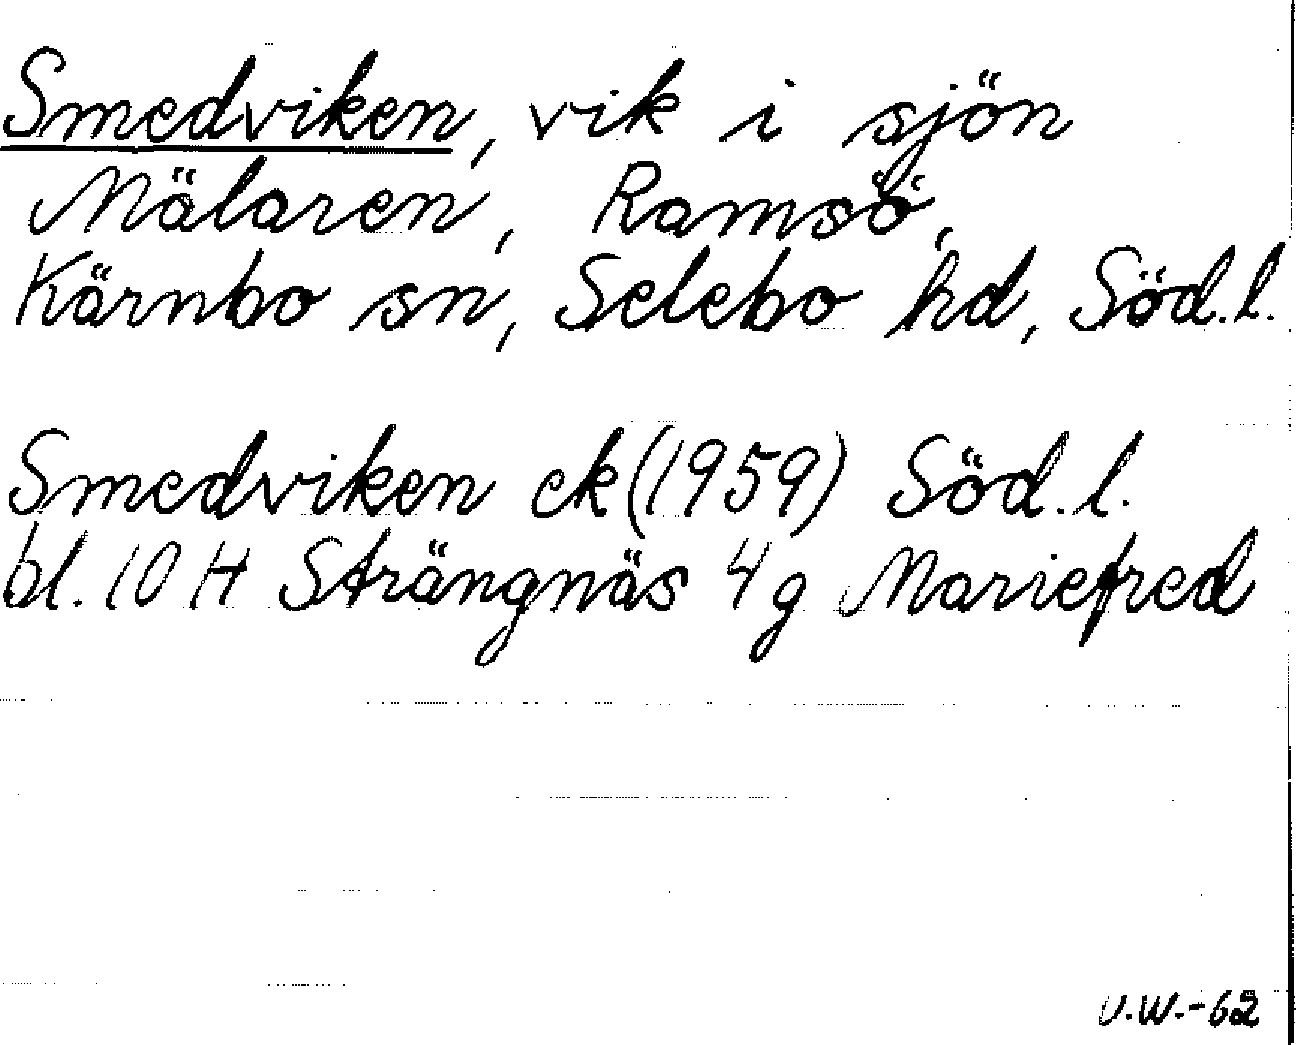 Smedviken, vik i sjön
Mälaren, Ramsö,
Kärnbo sn, Selebo hd, Söd.l.
Smedviken ek (1959) Söd.l.
bl. 10 H Strängnäs 4g Mariefred
U.W.-62